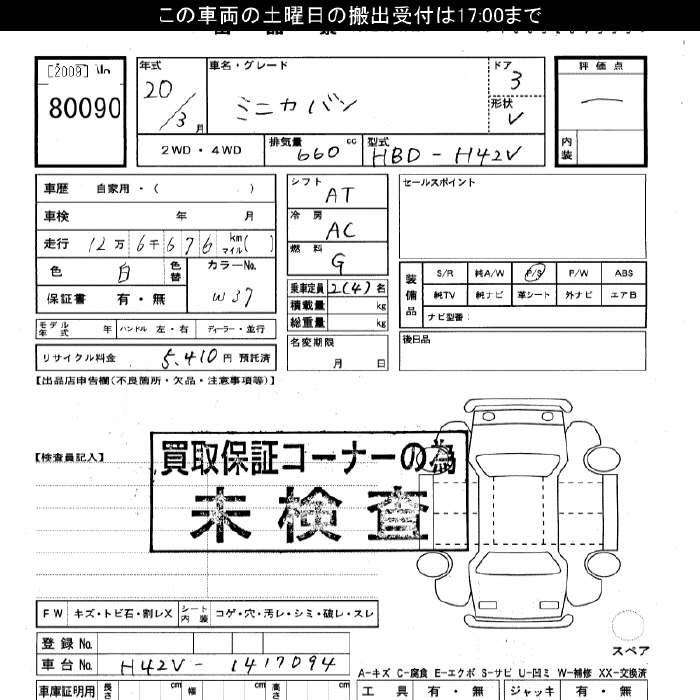 この車両の土曜日の搬出受付は17:00まで
[2009]
80090
年式
20/3月
車名・グレード
ミニカバン
ドア
3
形状
V
評価点
一
内装
2WD・4WD
排気量 660 cc
型式 HBD-H42V
車歴 自家用・( )
車検 年 月
走行 12万6千676 km マイル( )
色 白 色替
カラーNo. W37
保証書 有・無
モデル年式 年 ハンドル 左・右 ディーラー・並行
リサイクル料金 5,410円 預託済
シフト AT
冷房 AC
燃料 G
乗車定員 2(4)名
積載量 kg
総重量 kg
名変期限
月 日
セールスポイント
装備品
S/R 純A/W P/S P/W ABS
純TV 純ナビ 革シート 外ナビ エアB
ナビ型番:
後日品
【出品店申告欄(不良箇所・欠品・注意事項等)】
【検査員記入】
買取保証コーナーの為
未検査
FW キズ・トビ石・割レX シート内装 コゲ・穴・汚レ・シミ・破レ・スレ
スペア
登録No.
車台No. H42V-1417094
A-キズ C-腐食 E-エクボ S-サビ U-凹ミ W-補修 XX-交換済
車庫証明用 長さ cm 幅 cm 高さ cm
工具 有・無 ジャッキ 有・無